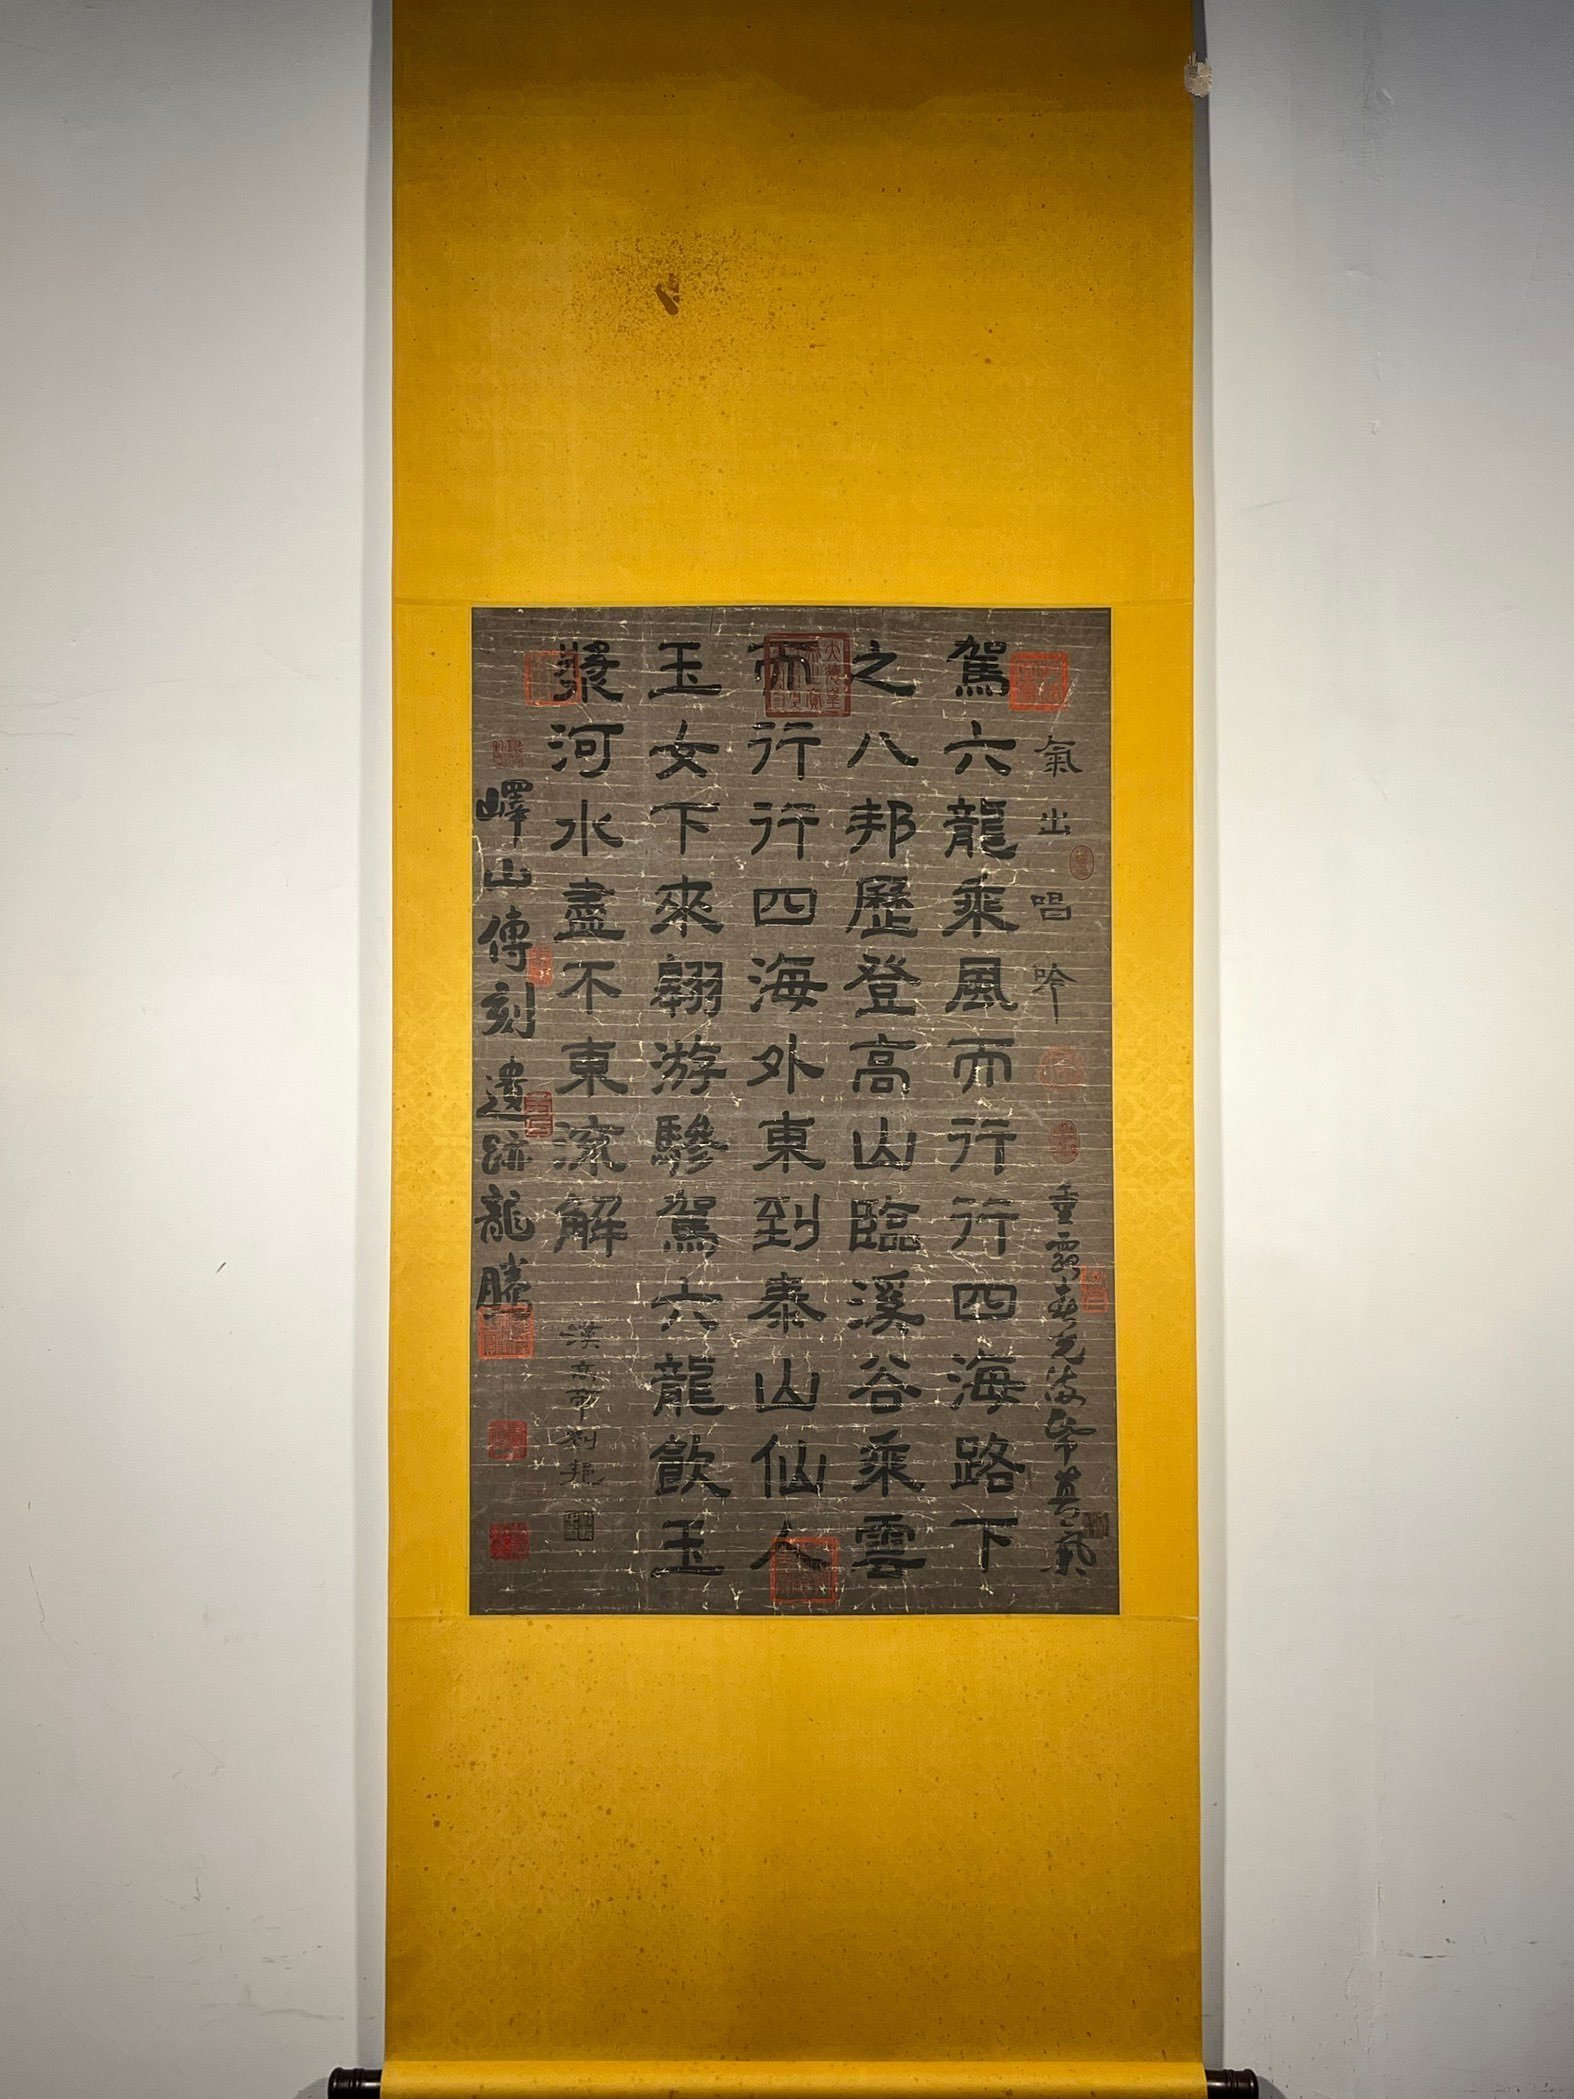 氣出唱吟
重露春光滿紫
駕六龍乘風而行行四海路下
之八邦歷登高山臨溪谷乘雲
而行行四海外東到泰山仙人
玉女下來翱游驂駕六龍飲玉
漿河水盡不東流解
漢高帝劉邦
嶧山傳刻遺跡龍騰